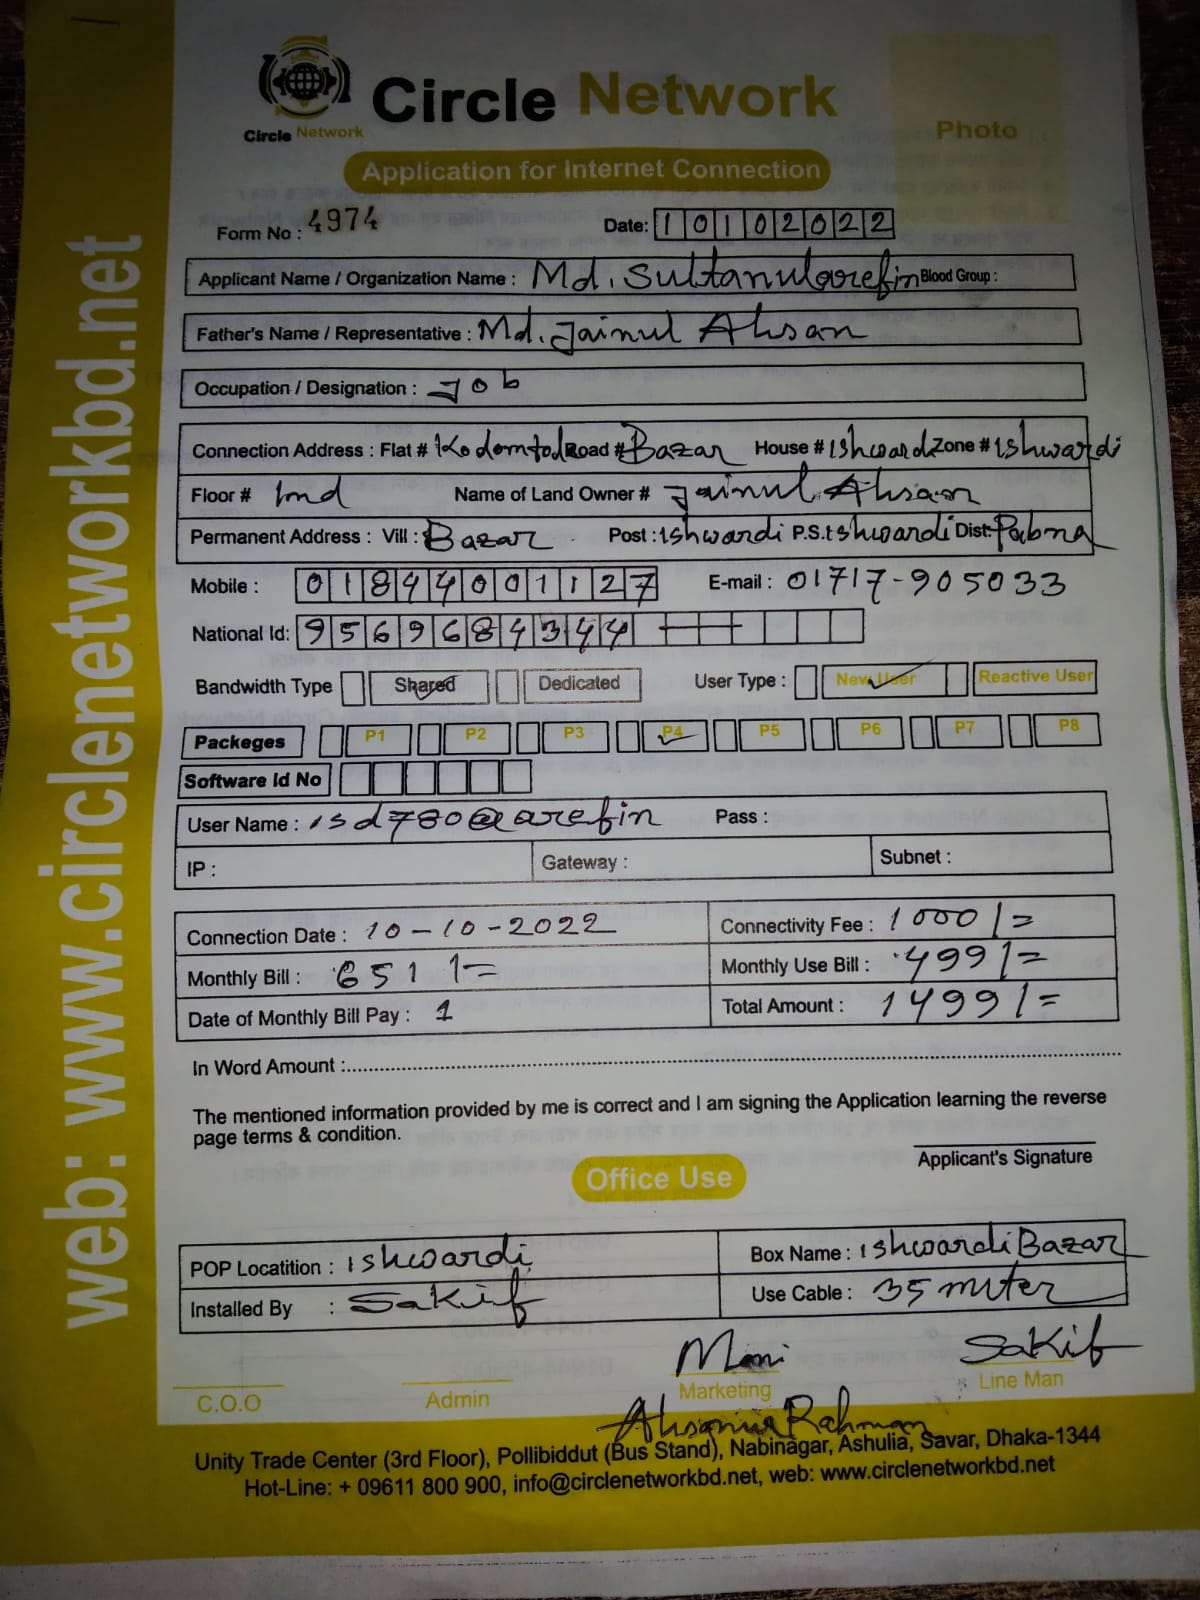 Circle Network
Circle Network
Photo
Application for Internet Connection
Form No : 4974 Date: 10102022
Applicant Name / Organization Name : Md. Sultanularefin Blood Group :
Father's Name / Representative : Md. Jainul Ahsan
Occupation / Designation : Job
Connection Address : Flat # Road # Bazar House # Ishward Zone # Ishwardi
Floor # Name of Land Owner # Jainul Ahsan
Permanent Address : Vill : Bazar Post : Ishwardi P.S. : Ishwardi Dist. Pabna
Mobile : 01844001127 E-mail : 01717-905033
National Id: 9569684344
Bandwidth Type Shared Dedicated User Type : New User Reactive User
Packeges P1 P2 P3 P4 P5 P6 P7 P8
Software Id No
User Name : isd780@arefin Pass :
IP : Gateway : Subnet :
Connection Date : 10-10-2022 Connectivity Fee : 1000/=
Monthly Bill : 651 1= Monthly Use Bill : 499/=
Date of Monthly Bill Pay : 1 Total Amount : 1499/=
In Word Amount :
The mentioned information provided by me is correct and I am signing the Application learning the reverse
page terms & condition.
Applicant's Signature
Office Use
POP Locatition : Ishwardi Box Name : Ishwardi Bazar
Installed By : Sakif Use Cable : 35 miter
Sakif
C.O.O Admin Marketing Line Man
Rahman
Unity Trade Center (3rd Floor), Pollibiddut (Bus Stand), Nabinagar, Ashulia, Savar, Dhaka-1344
Hot-Line: + 09611 800 900, info@circlenetworkbd.net, web: www.circlenetworkbd.net
web: www.circlenetworkbd.net